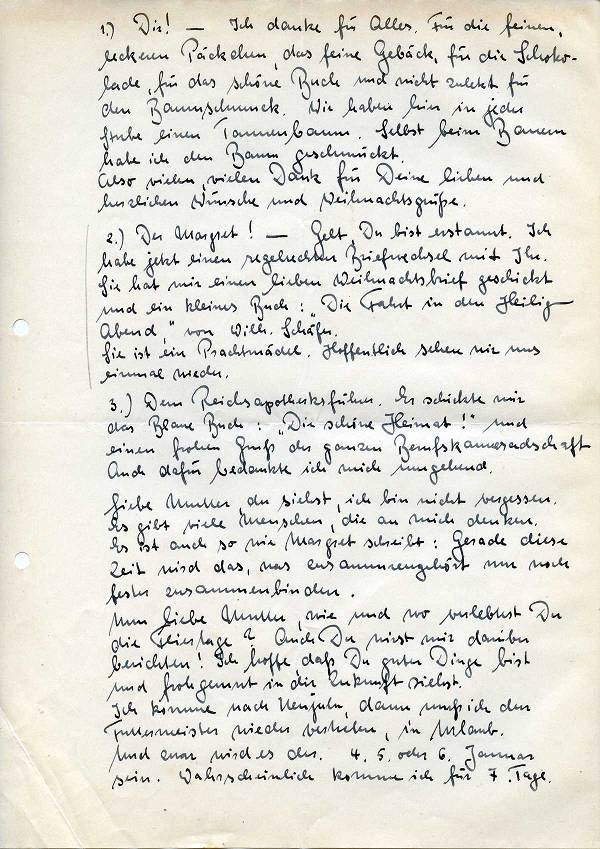 1.) Dir! — Ich danke für Alles. Für die feinen,
leckeren Päckchen, das feine Gebäck, für die Schoko-
lade, für das schöne Buch und nicht zuletzt für
den Baumschmuck. Wir haben hier in jeder
Stube einen Tannenbaum. Selbst beim Bauern
habe ich den Baum geschmückt.
Also vielen, vielen Dank für Deine lieben und
herzlichen Wünsche und Weihnachtsgrüße.
2.) Der Margret! — Gelt Du bist erstaunt. Ich
habe jetzt einen regelrechten Briefwechsel mit Ihr.
Sie hat mir einen lieben Weihnachtsbrief geschickt
und ein kleines Buch: "Die Fahrt in den Heilig-
Abend," von Wilh. Schäfer.
Sie ist ein Prachtmädel. Hoffentlich sehen wir uns
einmal wieder.
3.) Dem Reichsapothekerführer. Er schickte mir
das Blaue Buch: "Die schöne Heimat!" und
einen frohen Gruß der ganzen Berufskameradschaft
Auch dafür bedankte ich mich umgehend.
Liebe Mutter, du siehst, ich bin nicht vergessen.
Es gibt viele Menschen, die an mich denken.
Es ist auch so wie Margret schreibt: Gerade diese
Zeit wird das, was zusammengehört nur noch
fester zusammenbinden.
Nun liebe Mutter, wie und wo verlebtest Du
die Feiertage? Auch Du wirst mir darüber
berichten! Ich hoffe daß Du guter Dinge bist
und frohgemut in die Zukunft siehst.
Ich komme nach Neujahr, dann muß ich den
Futtermeister wieder vertreten, in Urlaub.
Und zwar wird es der. 4. 5. oder 6. Januar
sein. Wahrscheinlich komme ich für 7 Tage.